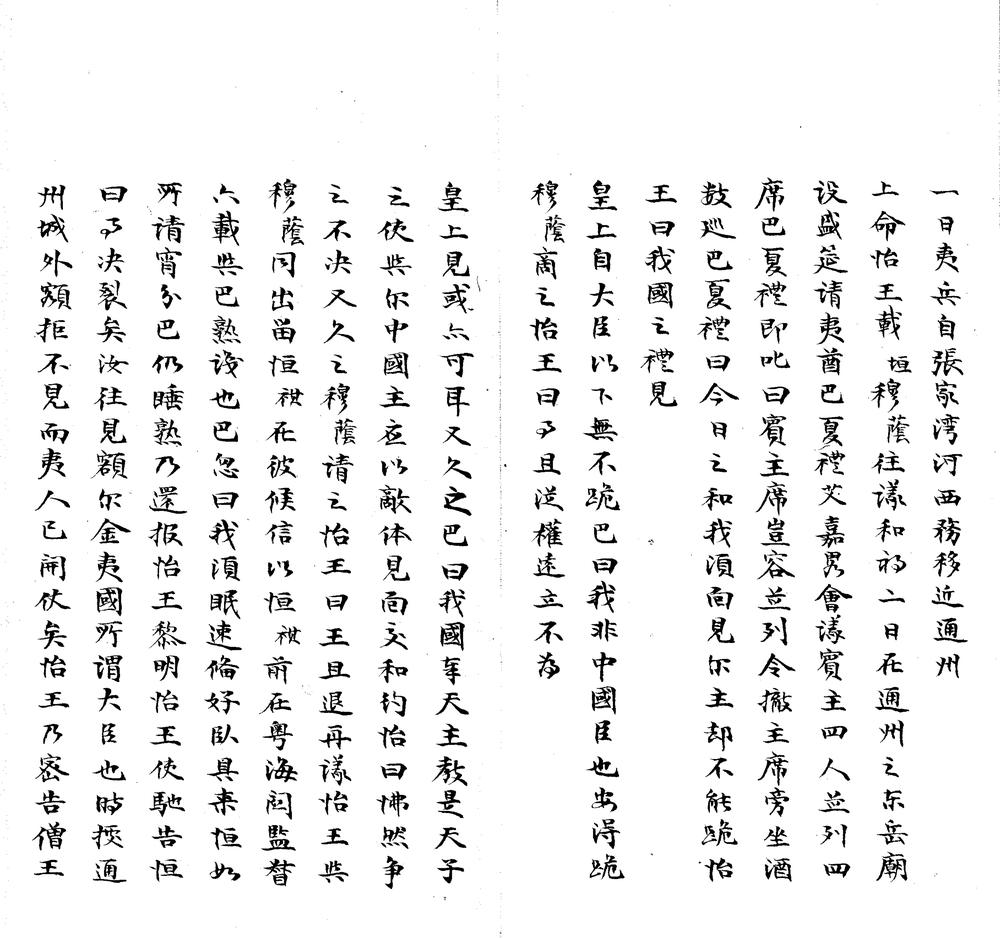 一日夷兵自張家湾河西務移近通州
上命怡王載垣穆蔭往議和初二日在通州之东岳廟
设盛筵请夷酋巴夏禮艾嘉畧會議賓主四人並列四
席巴夏禮即叱曰賓主席豈容並列令撤主席旁坐酒
数巡巴夏禮曰今日之和我須面見尔主却不能跪怡
王曰我國之禮見
皇上自大臣以下無不跪巴曰我非中國臣也安淂跪
穆蔭啇之怡王曰事且從權遠立不为
皇上見或亦可耳又久之巴曰我國奉天主教是天子
之使與尔中國主应以敵体見面交和约怡曰怫然争
之不决又久之穆蔭请之怡王曰王且退再議怡王與
穆蔭同出畱恒祺在彼候信以恒祺前在粤海関監督
六載與巴熟識也巴忽曰我須眠速偹好卧具来恒如
所请宵分巴仍睡熟乃還报怡王黎明怡王使馳告恒
曰事决裂矣汝往見額尔金夷國所谓大臣也時授通
州城外額拒不見而夷人已開仗矣怡王乃密告僧王